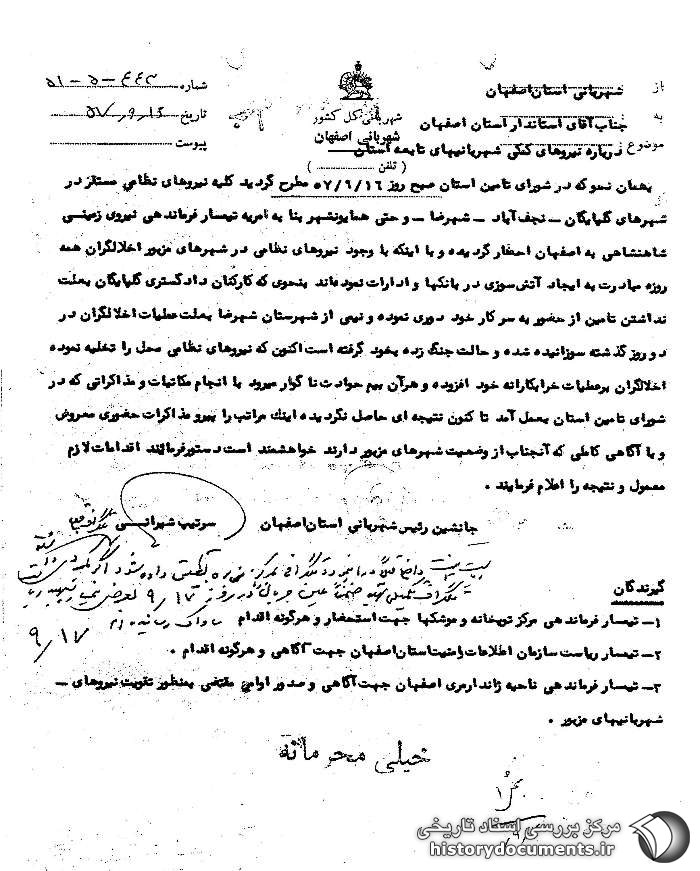 از شهربانی استان اصفهان
شماره ۴۴۳-۵-۵۱
شهربانی کل کشور
شهربانی اصفهان
به جناب آقای استاندار استان اصفهان
تاریخ
موضوع درباره نیروهای کمکی شهربانیهای تابعه استان
پیوست
( تلفن )
بهمان نحو که در شورای تامین استان صبح روز ۵۷/۹/۱۶ مطرح گردید کلیه نیروهای نظامی مستقر در
شهرهای گلپایگان ــ نجف آباد ــ شهرضا ــ و حتی همایونشهر بنا به امریه تیمسار فرماندهی نیروی زمینی
شاهنشاهی به اصفهان احضار گردیده و با اینکه با وجود نیروهای نظامی در شهرهای مزبور اخلالگران همه
روزه مبادرت به ایجاد آتش سوزی در بانکها و ادارات نموده‌اند بنحوی که کارکنان دادگستری گلپایگان بعلت
نداشتن تامین از حضور به سر کار خود دوری نموده و نیمی از شهرستان شهرضا بعلت عملیات اخلالگران در
دو روز گذشته سوزانیده شده و حالت جنگ زده بخود گرفته است اکنون که نیروهای نظامی محل را تخلیه نموده
اخلالگران بر عملیات خرابکارانه خود افزوده و هر آن بیم حوادث ناگوار میرود با انجام مکاتبات و مذاکراتی که در
شورای تامین استان بعمل آمد تا کنون نتیجه ای حاصل نگردیده اینک مراتب را پیرو مذاکرات حضوری معروض
و با آگاهی کاملی که آنجناب از وضعیت شهرهای مزبور دارند خواهشمند است دستور فرمائید اقدامات لازم
معمول و نتیجه را اعلام فرمایند .
جانشین رئیس شهربانی استان اصفهان سرتیپ شیرانی
گیرندگان
۱ــ تیمسار فرماندهی مرکز توپخانه و موشکها جهت استحضار و هرگونه اقدام
۹/۱۷
۲ــ تیمسار ریاست سازمان اطلاعات و امنیت استان اصفهان جهت آگاهی و هرگونه اقدام .
۳ــ تیمسار فرماندهی ناحیه ژاندارمری اصفهان جهت آگاهی و صدور اوامر مقتضی بمنظور تقویت نیروهای ــ
شهربانیهای مزبور .
خیلی محرمانه
مرکز بررسی اسناد تاریخی
historydocuments.ir